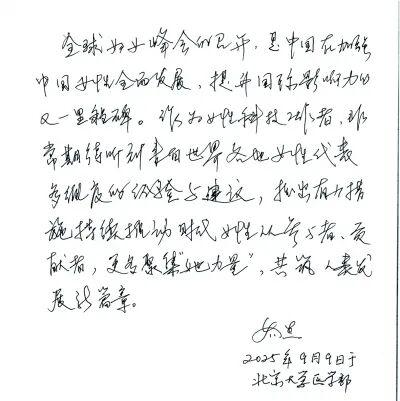 全球妇女峰会的召开，是中国在加强
中国女性全面发展，提升国际影响力的
又一里程碑。作为女性科技工作者，非
常期待听到来自世界各地女性代表
多维度的经验与建议，拟出有力措
施持续推动时代女性从参与者、贡
献者，更名聚集“她力量”，共筑人类发
展新篇章。
2025年9月9日于
北京大学医学部